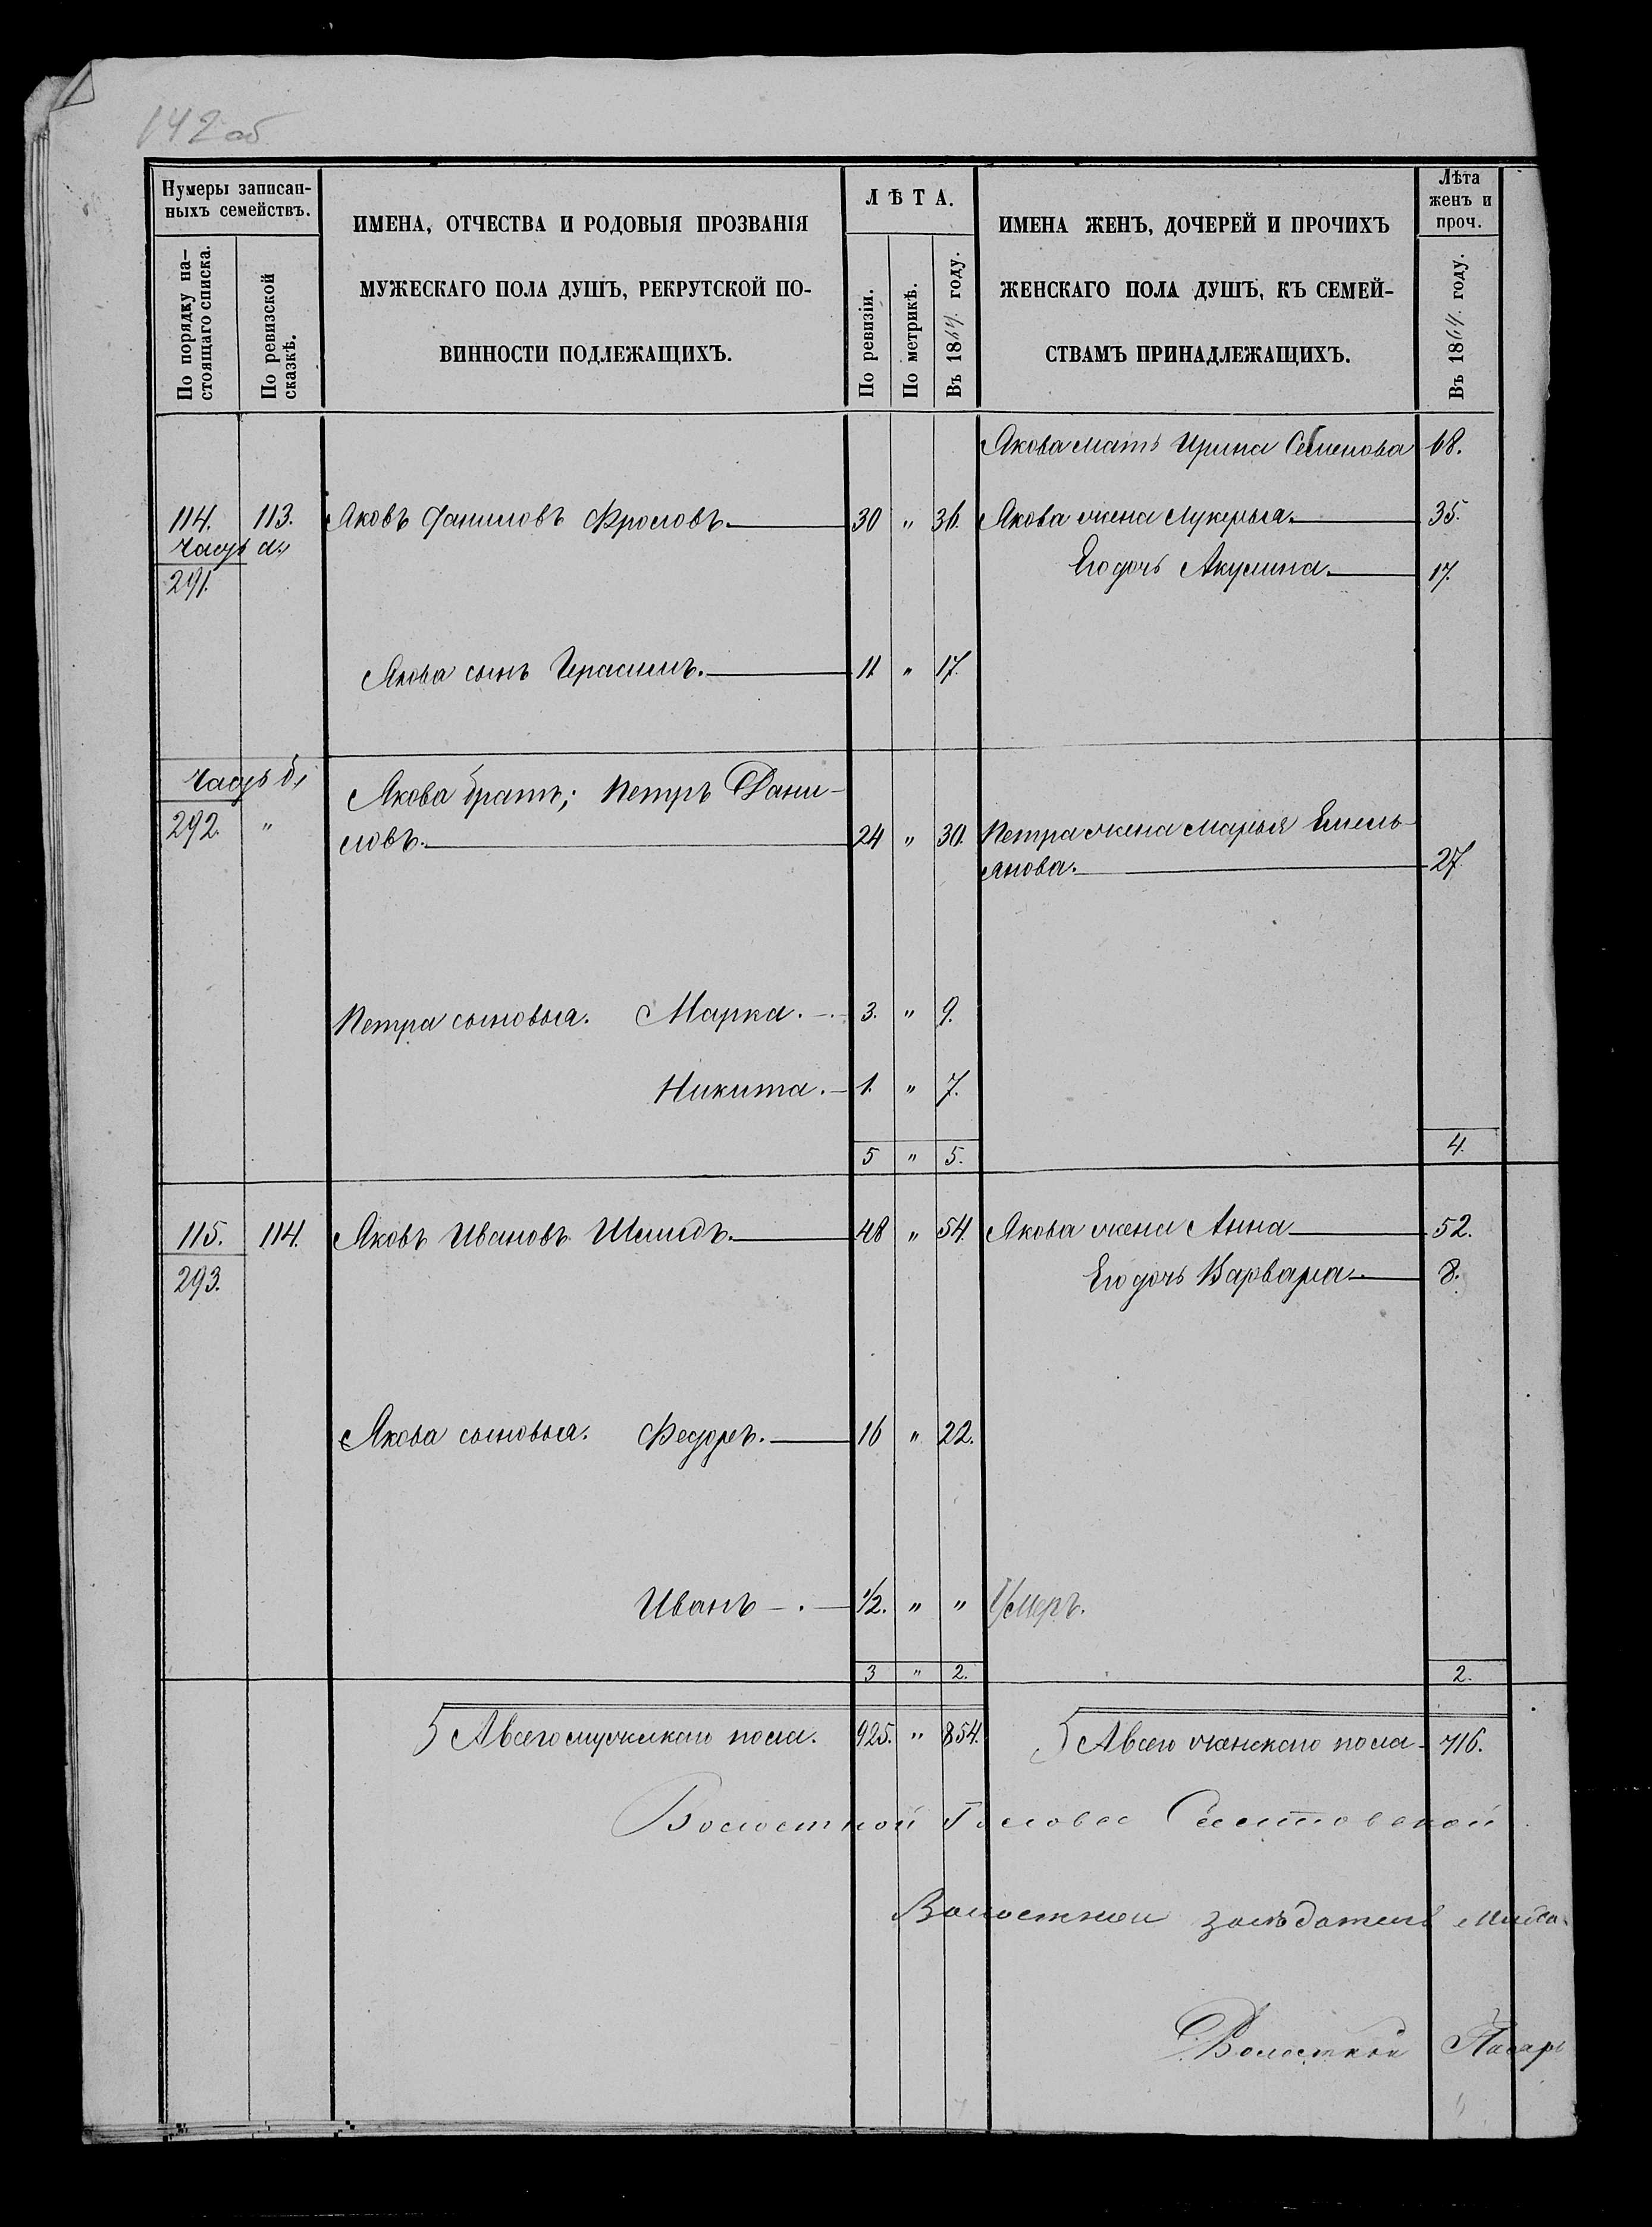 142 об
Нумеры записан-
ныхъ семействъ.
По порядку на-
стоящаго списка.
По ревизской
сказкѣ.
ИМЕНА, ОТЧЕСТВА И РОДОВЫЯ ПРОЗВАНІЯ
МУЖЕСКАГО ПОЛА ДУШЪ, РЕКРУТСКОЙ ПО-
ВИННОСТИ ПОДЛЕЖАЩИХЪ.
ЛѢТА.
По ревизіи.
По метрикѣ.
Въ 1864. году.
ИМЕНА ЖЕНЪ, ДОЧЕРЕЙ И ПРОЧИХЪ
ЖЕНСКАГО ПОЛА ДУШЪ, КЪ СЕМЕЙ-
СТВАМЪ ПРИНАДЛЕЖАЩИХЪ.
Лѣта
женъ и
проч.
Въ 1864. году.
Якова мать Ирина Семенова 68.
114. 113. Яковъ Даниловъ Фроловъ. 30 " 36. Якова жена Лукерья. 35.
часть а.,
Его дочь Акулина. 17.
291.
Якова сынъ Герасимъ. 11 " 17.
часть б.,
Якова братъ; Петръ Дани-
292. " ловъ. 24 " 30. Петра жена Марья Емель-
янова. 27.
Петра сыновья. Марка. 3. " 9.
Никита. 1. " 7.
5 " 5. 4.
115. 114. Яковъ Ивановъ 48 " 54. Якова жена Анна 52.
293. Его дочь Варвара. 8.
Якова сыновья. Федоръ. 16 " 22.
Иванъ 1/2. " " Умеръ.
3 " 2. 2.
А всего мужскаго пола. 925. " 854. А всего женскаго пола 716.
Волостной Голова
Волостнои засѣдатель
Волостной Писарь